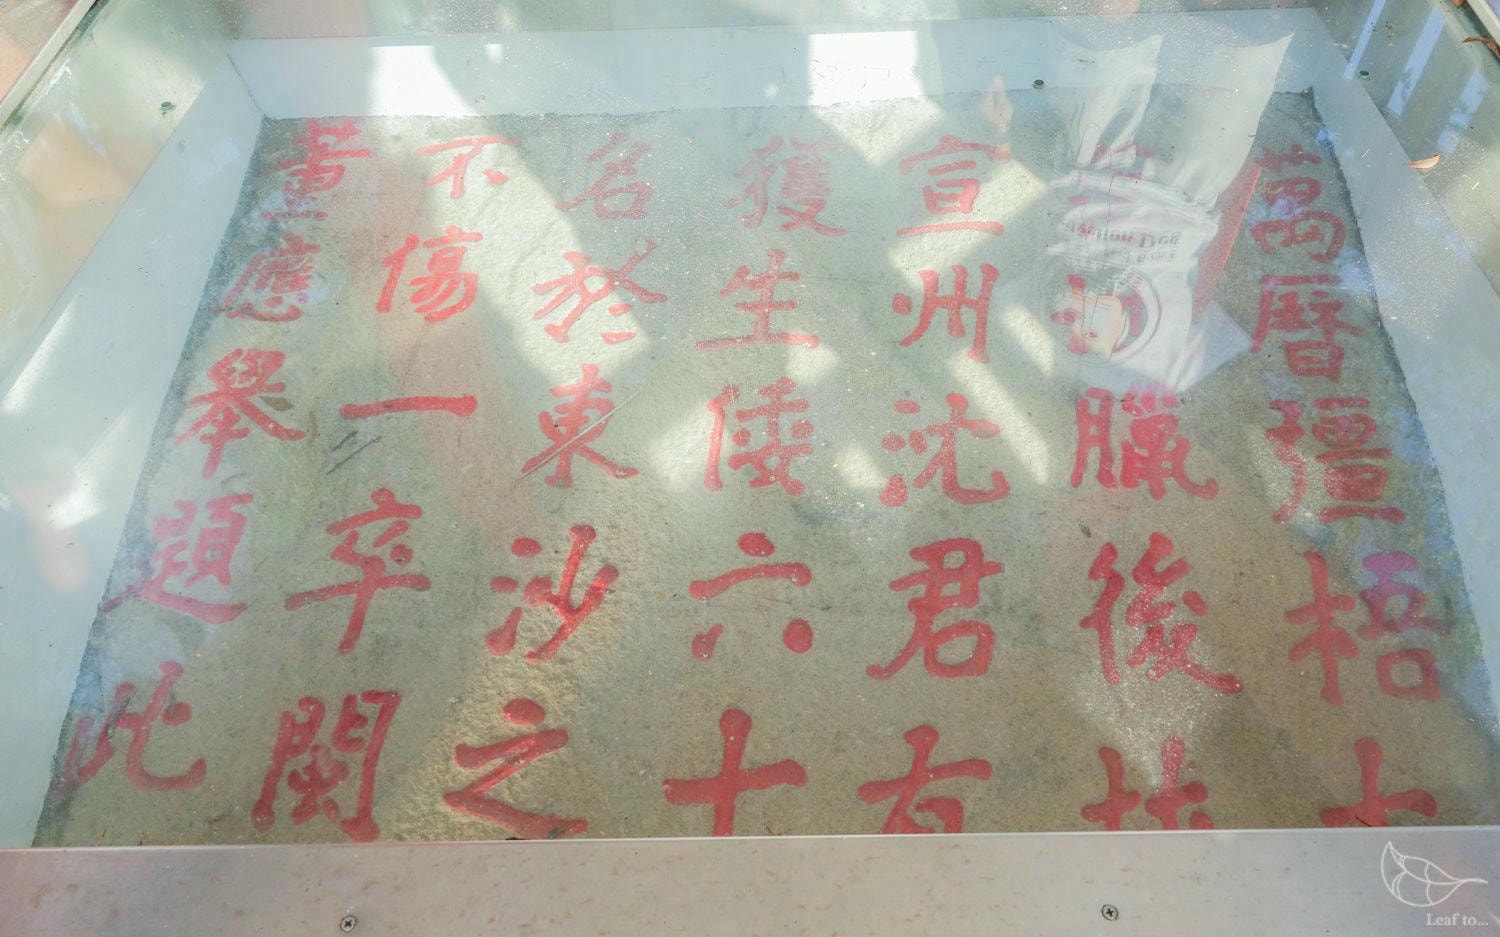 萬曆彊梧
臘後
宣州沈君有
獲生倭六十
名於東沙之
不傷一卒閩
董應舉題此
Dog
Leaf to...